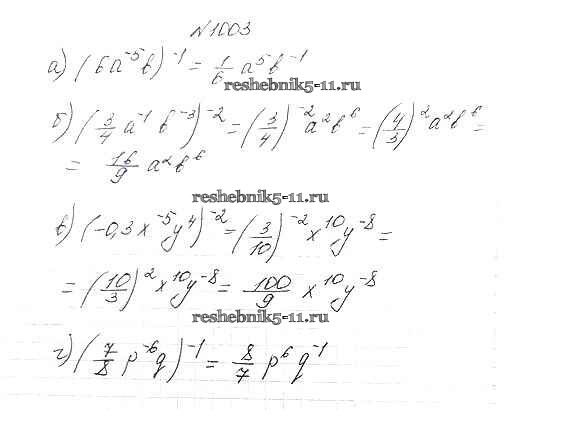 №1003
а) (6a⁻⁵b)⁻¹ = 1/6 a⁵b⁻¹
reshebnik5-11.ru
б) (3/4 a⁻¹ b⁻³)⁻² = (3/4)⁻² a²b⁶ = (4/3)² a²b⁶ =
= 16/9 a²b⁶
reshebnik5-11.ru
в) (-0,3x⁻⁵y⁴)⁻² = (3/10)⁻² x¹⁰y⁻⁸ =
= (10/3)² x¹⁰y⁻⁸ = 100/9 x¹⁰y⁻⁸
reshebnik5-11.ru
г) (7/8 p⁻⁶q)⁻¹ = 8/7 p⁶q⁻¹